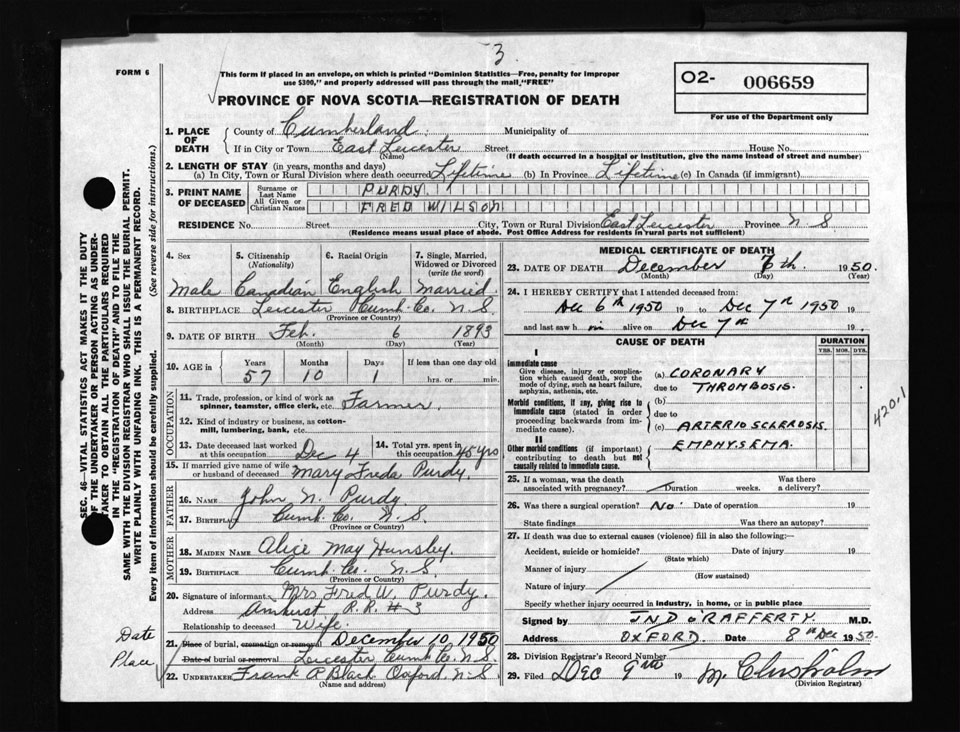 3
FORM 6
This form if placed in an envelope, on which is printed "Dominion Statistics—Free, penalty for improper
use $300," and properly addressed will pass through the mail "FREE"
O2- 006659
For use of the Department only
PROVINCE OF NOVA SCOTIA—REGISTRATION OF DEATH
SEC. 46—VITAL STATISTICS ACT MAKES IT THE DUTY
OF THE UNDERTAKER OR PERSON ACTING AS UNDER-
TAKER TO OBTAIN ALL THE PARTICULARS REQUIRED
IN THE "REGISTRATION OF DEATH" AND TO FILE THE
SAME WITH THE DIVISION REGISTRAR WHO SHALL ISSUE THE BURIAL PERMIT.
WRITE PLAINLY WITH UNFADING INK. THIS IS A PERMANENT RECORD.
Every item of information should be carefully supplied. (See reverse side for instructions.)
1. PLACE OF DEATH County of Cumberland Municipality of
If in City or Town East Leicester Street House No.
(Name) (If death occurred in a hospital or institution, give the name instead of street and number)
2. LENGTH OF STAY (in years, months and days)
(a) In City, Town or Rural Division where death occurred Lifetime (b) In Province Lifetime (c) In Canada (if immigrant)
3. PRINT NAME OF DECEASED Surname or Last Name PURDY
All Given or Christian Names FRED WILSON
RESIDENCE No. Street City, Town or Rural Division East Leicester Province N S
(Residence means usual place of abode. Post Office Address for residents in rural parts not sufficient)
4. Sex 5. Citizenship (Nationality) 6. Racial Origin 7. Single, Married, Widowed or Divorced (write the word)
Male Canadian English Married
8. BIRTHPLACE Leicester Cumb. Co. N. S.
(Province or Country)
9. DATE OF BIRTH Feb. 6 1893
(Month) (Day) (Year)
10. AGE in Years Months Days If less than one day old
57 10 1 hrs. or min.
OCCUPATION
11. Trade, profession, or kind of work as spinner, teamster, office clerk, etc. Farmer
12. Kind of industry or business, as cotton-mill, lumbering, bank, etc.
13. Date deceased last worked at this occupation Dec 4 14. Total yrs. spent in this occupation 45 yrs
15. If married give name of wife or husband of deceased Mary Freda Purdy
FATHER
16. NAME John N. Purdy
17. BIRTHPLACE Cumb. Co. N. S.
(Province or Country)
MOTHER
18. MAIDEN NAME Alice May Hunsley
19. BIRTHPLACE Cumb. Co. N. S.
(Province or Country)
20. Signature of informant Mrs Fred W. Purdy
Address Amherst R. R. # 3
Relationship to deceased Wife
Date 21. Place of burial, cremation or removal December 10, 1950
Place Date of burial or removal Leicester Cumb. Co. N. S.
22. UNDERTAKER Frank P Black Oxford, N-S
(Name and address)
MEDICAL CERTIFICATE OF DEATH
23. DATE OF DEATH December 7th. 1950.
(Month) (Day) (Year)
24. I HEREBY CERTIFY that I attended deceased from:
Dec 6th 1950 19 to Dec 7th 1950 19
and last saw h im alive on Dec 7th 19
CAUSE OF DEATH DURATION
YRS. MOS. DYS.
I
Immediate cause
Give disease, injury or complication which caused death, not the mode of dying, such as heart failure, asphyxia, asthenia, etc.
(a) CORONARY
due to THROMBOSIS.
Morbid conditions, if any, giving rise to immediate cause (stated in order proceeding backwards from immediate cause).
(b)
due to
(c) ARTERIO SCLEROSIS.
420.1
II
Other morbid conditions (if important) contributing to death but not causally related to immediate cause.
EMPHYSEMA.
25. If a woman, was the death associated with pregnancy? Duration weeks. Was there a delivery?
26. Was there a surgical operation? No. Date of operation 19
State findings Was there an autopsy?
27. If death was due to external causes (violence) fill in also the following:—
Accident, suicide or homicide? Date of injury 19
(State which)
Manner of injury
(How sustained)
Nature of injury
Specify whether injury occurred in industry, in home, or in public place
Signed by JND O'RAFFERTY M.D.
Address OXFORD. Date 8th Dec 1950.
28. Division Registrar's Record Number
29. Filed Dec 9th 19 M. Chisholm
(Division Registrar)